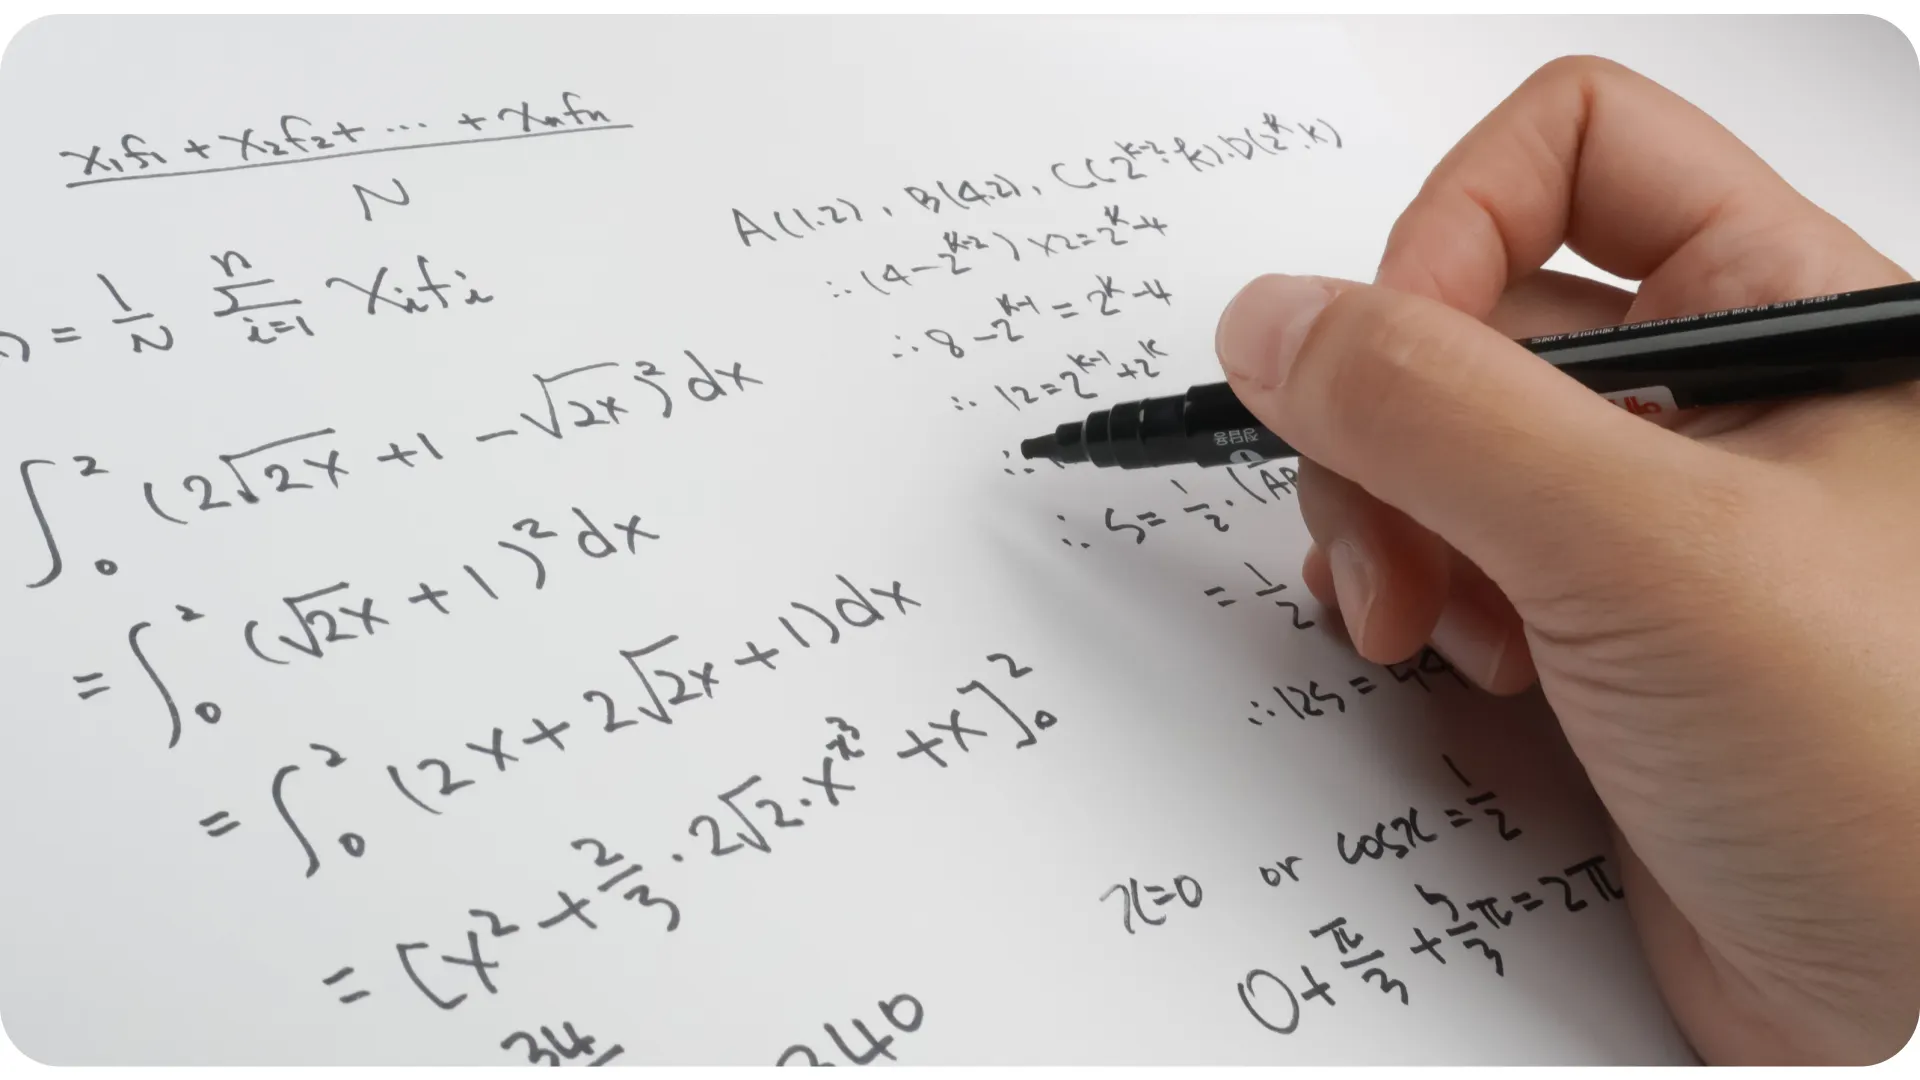 x₁f₁ + x₂f₂ + ... + xₙfₙ
N
) = 1/N ∑ⁿᵢ₌₁ xᵢfᵢ
∫₀² (2√2x + 1 - √2x)² dx
= ∫₀² (√2x + 1)² dx
= ∫₀² (2x + 2√2x + 1) dx
= [x² + 2/3 · 2√2 · x + x]₀²
34
340
A(1.2), B(4.2), C(2ᵏ⁻², k). D(2ᵏ, k)
∴ (4 - 2ᵏ⁻²) × 2 = 2ᵏ - 4
∴ 8 - 2ᵏ⁻¹ = 2ᵏ - 4
∴ 12 = 2ᵏ⁻¹ + 2ᵏ
∴
∴ S = 1/2 · (AB
= 1/2
∴ 12S =
x=0 or cosx = 1/2
0 + π/3 + 5/3 π = 2π